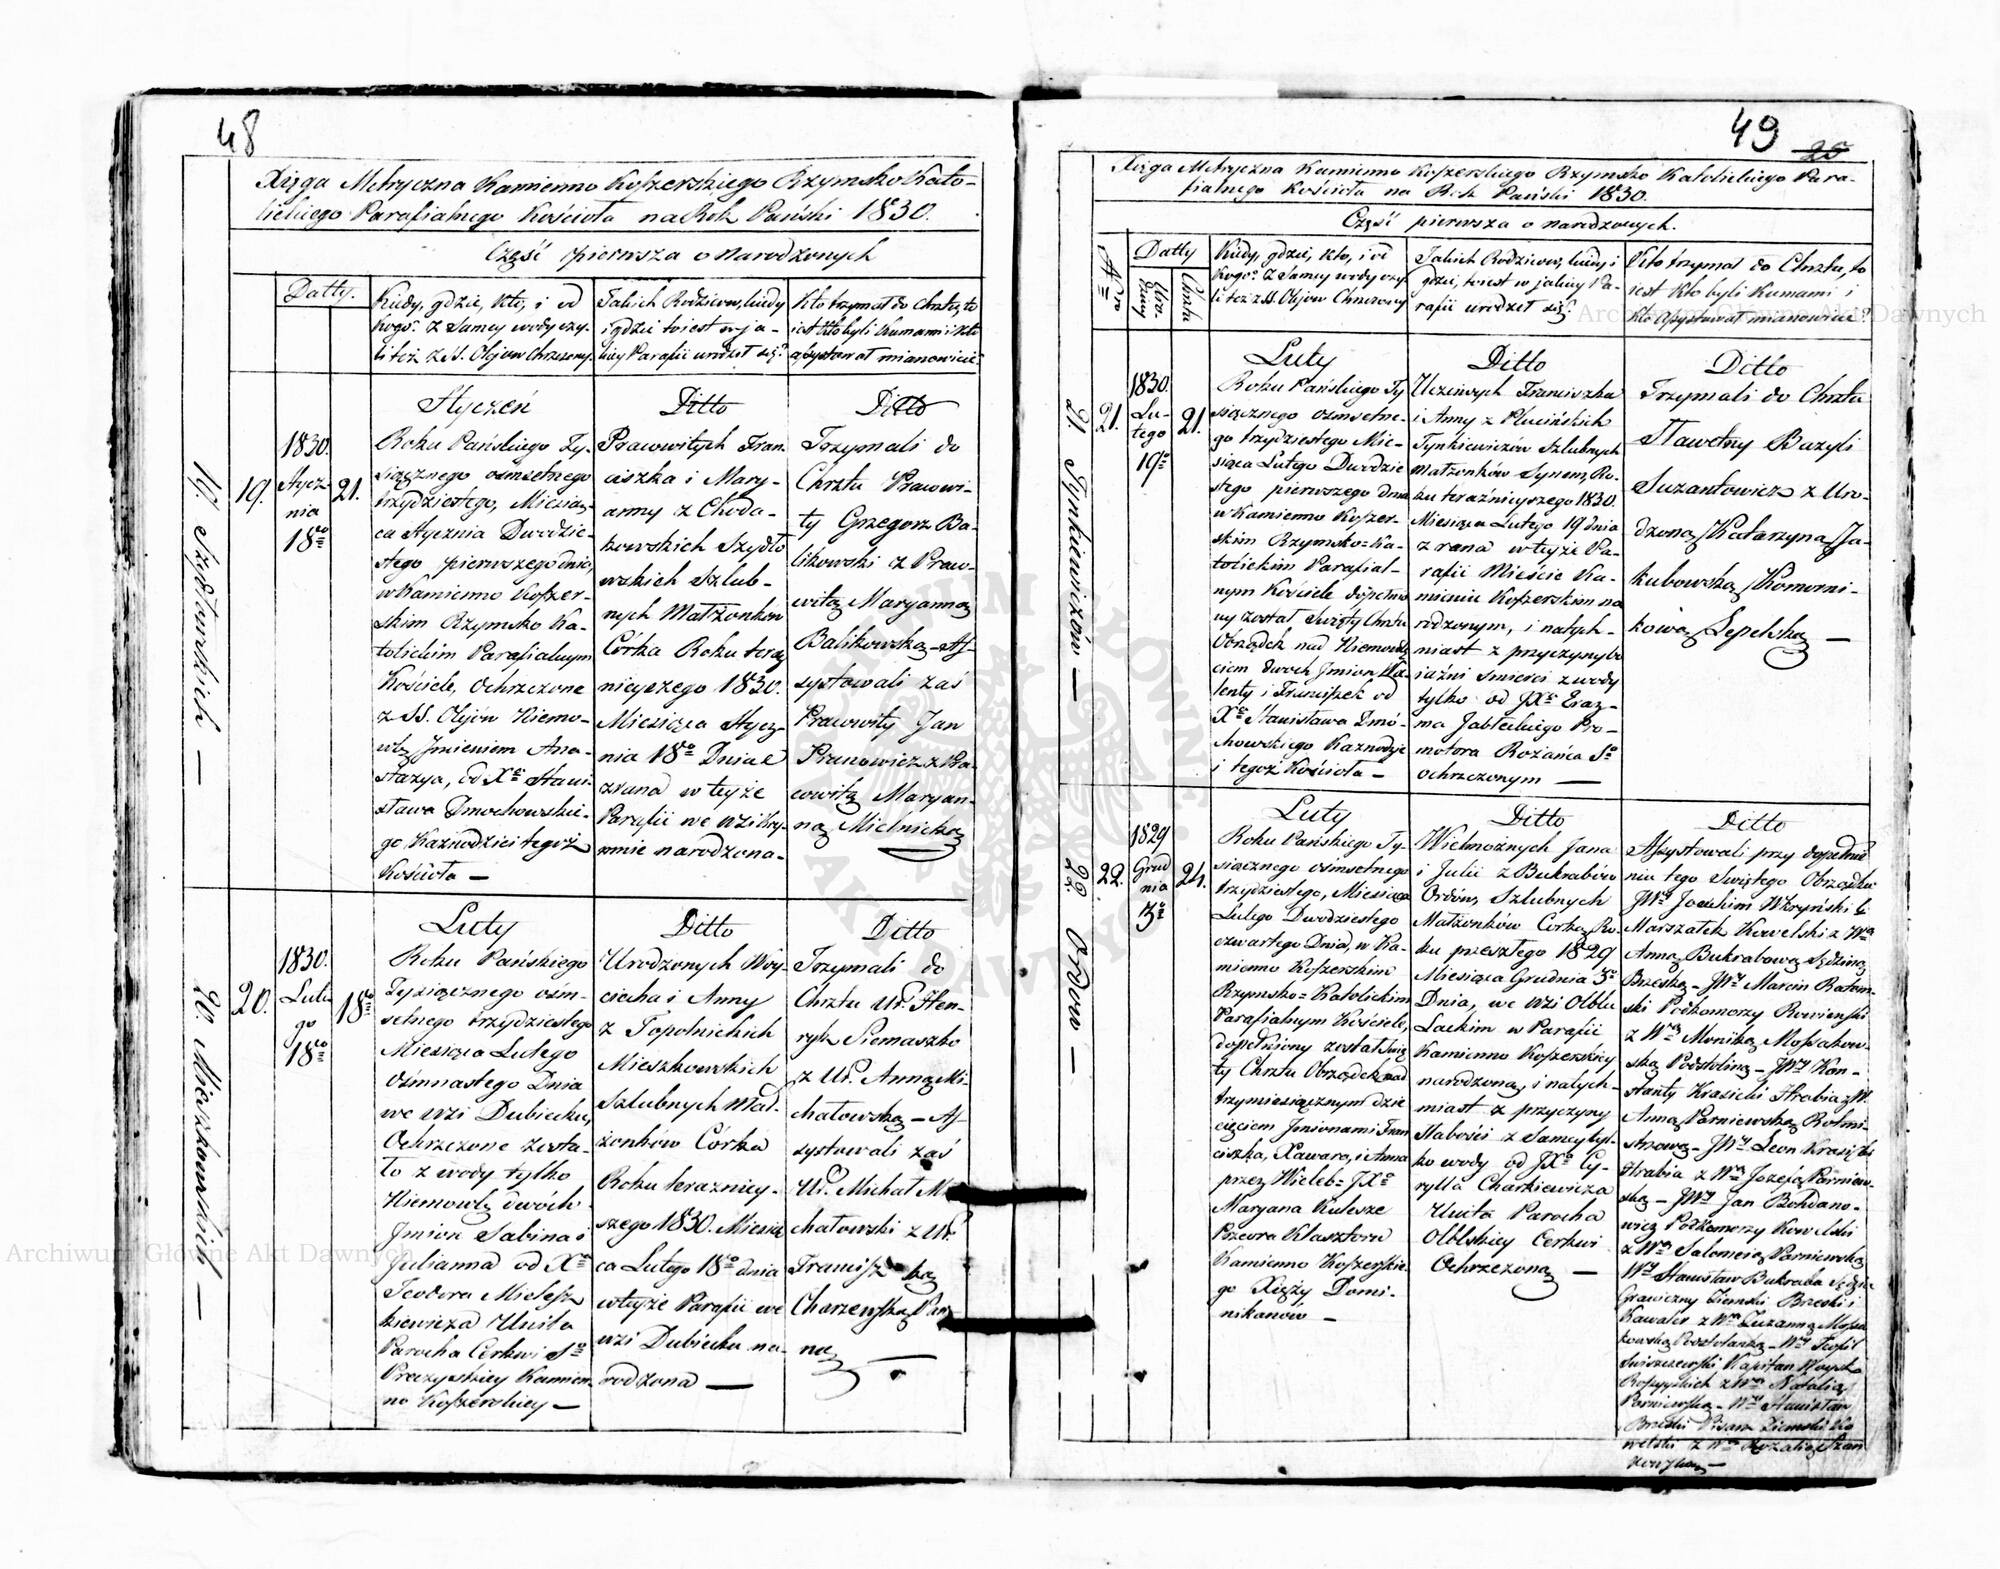 48
Xięga Metryczna Kamienno Koszerskiego Rzymsko Kato-
lickiego Parafialnego Kościoła na Rok Pański 1830.
Część pierwsza o narodzonych
Datty.
Kiedy, gdzie, kto, i od
kogo? z Samey wody czy-
li też z SS. Olejów chrzczony
Jakich Rodziców, kiedy
i gdzie to iest w ja-
kiey Parafii urodził się?
Kto trzymał do Chrztu, to
iest kto byli kumami i kto
assystował mianowicie?
19. Szydłowskich —
19.
1830.
Stycz-
nia
18go
21.
Styczeń
Roku Pańskiego Ty-
siącznego ośmsetnego
trzydziestego, Miesią-
ca Stycznia Dwudzie-
stego pierwszego dnia,
w Kamienno Koszer-
skim Rzymsko Ka-
tolickim Parafialnym
Kościele, Ochrzczone
z SS. Olejów Niemo-
wlę Jmieniem Ana-
stazya, od Xa Stani-
sława Dmochowskie-
go Kaznodziei tegoż
Kościoła —
Ditto
Prawowitych Fran-
ciszka i Mary-
anny z Choda-
kowskich Szydło
wskich Szlub-
nych Małżonków
Córka Roku teraz
nieyszego 1830.
Miesiąca Stycz-
nia 18go Dnia
zrana w teyże
Parafii we wsi Kry-
mnie narodzona-
Ditto
Trzymali do
Chrztu Prawowi-
ty Grzegorz Ba-
likowski z Praw-
witą Maryanną
Balikowską — As-
systowali zaś
Prawowity Jan
Prunowicz z Pra-
wowitą Maryan-
ną Mielnicką
20. Mieszkowskich —
20.
1830.
Lute
go
18go
18go
Luty
Roku Pańskiego
Tysiącznego ośm-
setnego trzydziestego
Miesiąca Lutego
Ośmnastego Dnia
we wsi Dubiecku,
Ochrzczone zosta-
ło z wody tylko
Niemowlę dwóch
Jmion Sabina i
Julianna od Xa
Teodora Mielesz
kiewicza Unita
Parocha Cerkwi Sa
Preczystkiey Kamien-
no Koszerskiey —
Ditto
Urodzonych Woy-
ciecha i Anny
z Topolnickich
Mieszkowskich
Szlubnych Mał-
żonków Córka
Roku teraźniey-
szego 1830. Miesią
ca Lutego 18go dnia
w teyże Parafii we
wsi Dubiecku na-
rodzona —
Ditto
Trzymali do
Chrztu Ur. Hen-
ryk Siemaszko
z Ur. Anną Mi-
chałowską — As-
systowali zaś
Ur. Michał Mi-
chałowski z Ur.
Charzewską Pan
ną —
49
25
Xięga Metryczna Kamienno Koszerskiego Rzymsko Katolickiego Para-
fialnego Kościoła na Rok Pański 1830.
Część pierwsza o narodzonych.
Datty
Uro-
dzenia
Chrztu
Kiedy, gdzie, kto, i od
kogo? z Samey wody czy-
li też z SS. Olejów Chrzczony
Jakich Rodziców, kiedy i
gdzie, to iest w jakiey Pa-
rafii urodził się?
Kto trzymał do Chrztu, to
iest kto byli Kumami i
kto Assystował mianowicie?
21 Tynkiewiczów —
21.
1830.
Lu-
tego
19o
21.
Luty
Roku Pańskiego Ty-
siącznego ośmsetne-
go trzydziestego Mie-
siąca Lutego Dwudzie
stego pierwszego dnia
w Kamienno Koszer-
skim Rzymsko=Ka-
tolickim Parafial-
nym Kościele dopełnio
ny został Święty Chrztu
Obrządek nad Niemowlę
ciem dwoch Jmion Wa-
lenty i Franciszek od
Xa Stanisława Dmo-
chowskiego Kaznodzie
i tegoż Kościoła —
Ditto
Uczciwych Franciszka
i Anny z Plucińskich
Tynkiewiczów Szlubnych
Małżonków Synem, Ro-
ku teraźnieyszego 1830.
Miesiąca Lutego 19 dnia
z rana w teyże Pa-
rafii Mieście Ka-
mieniu Koszerskim na
rodzonym, i natych-
miast z przyczyny bo
iaźni śmierci z wody
tylko od JXa Eraz-
ma Jabłeckiego Pro-
motora Rożańca So
ochrzczonym —
Ditto
Trzymali do Chrztu
Sławetny Bazyli
Suzantowicz z Uro-
dzoną Katarzyną Ja-
kubowską Komorni-
kową Lepelską —
22 Ordow —
22.
1829
Grud
nia
3o
24.
Luty
Roku Pańskiego Ty-
siącznego ośmsetnego
trzydziestego, Miesiąca
Lutego Dwudziestego
czwartego Dnia, w Ka-
mienno Koszerskim
Rzymsko=Katolickim
Parafialnym Kościele,
dopełniony został Świę
ty Chrztu Obrządek nad
trzymiesiącznym dzie
cięciem Jmionami Fran
ciszka, Xawera, i Anna
przez Wieleb= JXa
Maryana Kulesze
Przeora Klasztoru
Kamienno Koszerskie-
go Xięży Domi-
nikanów —
Ditto
Wielmożnych Jana
i Julii z Bukrabów
Ordów, Szlubnych
Małżonków Corką Ro-
ku przeszłego 1829
Miesiąca Grudnia 3o
Dnia, we wsi Olblu
Lackim w Parafii
Kamienno Koszerskiey
narodzoną, i natych-
miast z przyczyny
słabości z Samey tyl-
ko wody od JXa Cy-
rylla Charkiewicza
Unita Parocha
Olblskiey Cerkwi
Ochrzczoną —
Ditto
Assystowali przy dopełnie
niu tego Świętego Obrządku
Marszałek Kowelski z Wą
Anną Bukrabową Sędziną
Brzeską — JWy Marcin Ratom-
ski Podkomorzy Rowieński
z Wą Moniką Mossakow-
ską Podstoliną — JWy Kon-
stanty Krasicki Hrabia z W.
Anną Parniewską Rotmi-
strzową — JWy Leon Krasicki
Hrabia z Wą Jozefą Parniew-
ską — JWy Jan Bohdano-
wicz Podkomorzy Kowelski
z Wą Salomeią Parniewską
Wy Stanisław Bukraba Sędzia
Graniczny Ziemski Brzeski i
Kawaler z Wą Zuzanną Mossa
kowską Podstolanką — Wy Teofil
Kapitan Woysk
Rossyyskich z Wą Natalią
Parniewską — Wy Stanisław
Brzeski Pisarz Ziemski Ko
welski z Wą Rozalią
Archiwum Główne Akt Dawnych
Archiwum Główne Akt Dawnych